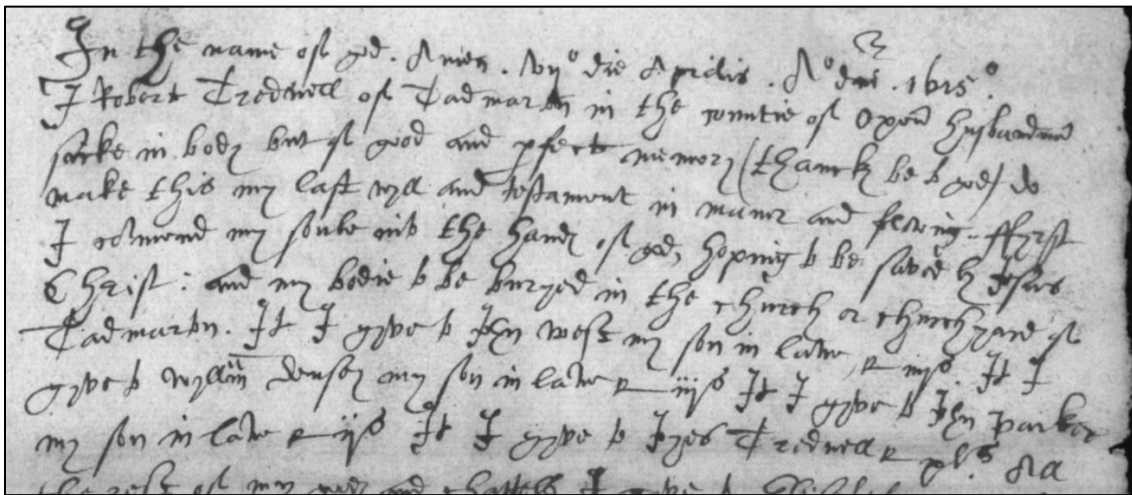 In the name of god. Amen. vijo die Aprilis. Ao dni. 1615o
I Robert Tredwell of Tadmarton in the countie of Oxon husbandmn
sicke in body but of good and pfect memory (thanckes be to god) do
make this my last wyll and testament in maner and folowing. ffyrst
I comend my soule into the handes of god, hoping to be saved by Jesus
Christ: and my bodie to be buryed in the church or churchyard of
Tadmarton. It I gyve to Jhn west my son in lawe iijs. It I
gyve to wyllm my son in lawe iijs It I gyve to Jhn parker
my son in lawe iijs It I gyve to Tredwell xls All
the rest of my goodes and chattells I gyve to